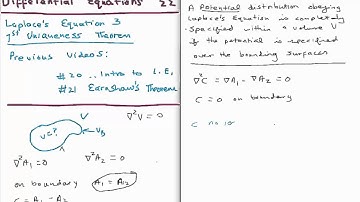 Differential Equations 22
Laplace's Equation 3
1st Uniqueness Theorem
Previous Videos:
#20 .. Intro to L.E,
#21 Earnshaw's Theorem
V
∇²V = 0
VC?
V_B
∇²A₁ = 0 ∇²A₂ = 0
on boundary A₁ = A₂
C = A₁ - A₂
A Potential distribution obeying
Laplace's Equation is completely
Specified within a volume V
if the potential is specified
over the bounding surfaces
∇²C = ∇A₁ - ∇A₂ = 0
C = 0 on boundary
C no